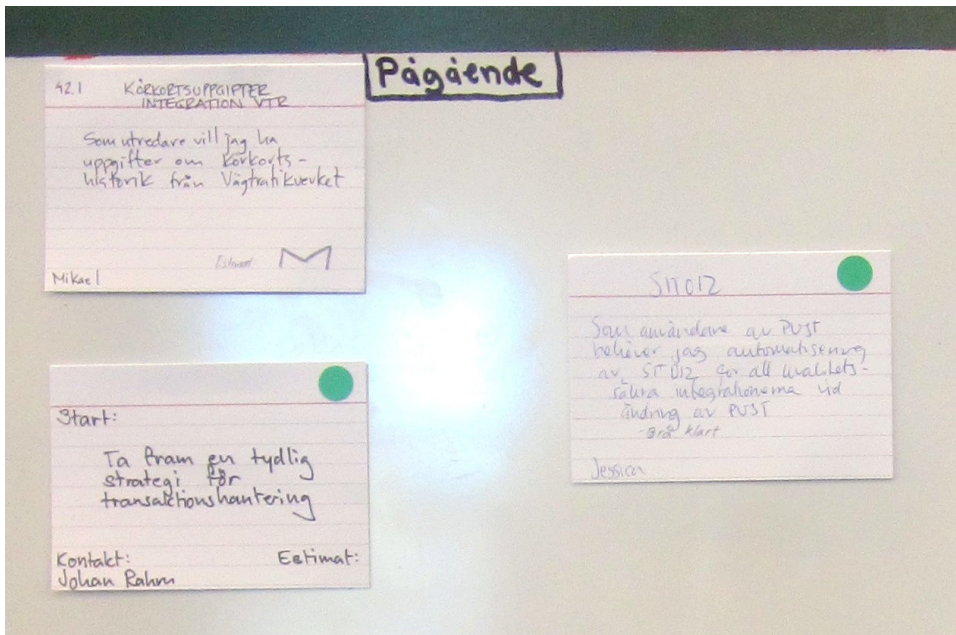 Pågående
42.1 KÖRKORTSUPPGIFTER
INTEGRATION VTR
Som utredare vill jag ha
uppgifter om körkorts-
historik från Vägtrafikverket
M
Mikael
Start:
Ta fram en tydlig
strategi för
transaktionshantering
Kontakt: Estimat:
Johan Rahm
SITD12
Som användare av PUST
behöver jag automatisering
av SITD12 för att kvalitets-
säkra integrationerna vid
ändring av PUST
klart
Jessica